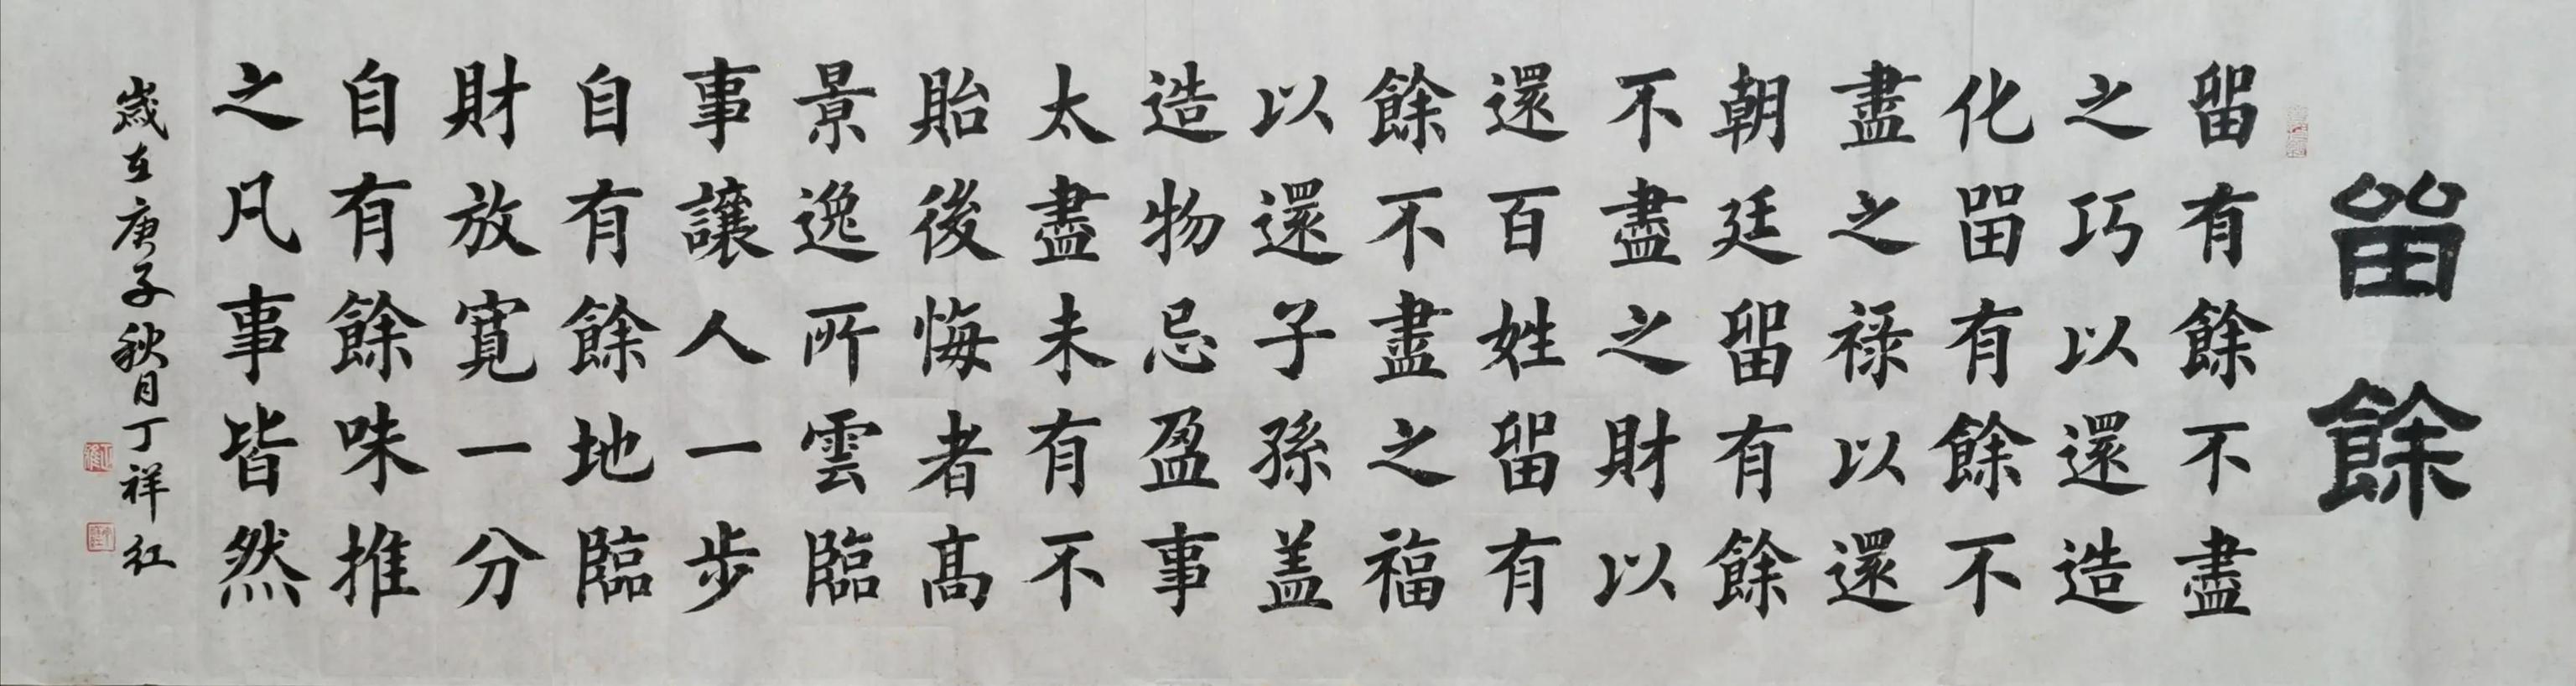 留餘
留有餘不盡
之巧以還造
化留有餘不
盡之祿以還
朝廷留有餘
不盡之財以
還百姓留有
餘不盡之福
以還子孫盖
造物忌盈事
太盡未有不
貽後悔者高
景逸所雲臨
事讓人一步
自有餘地臨
財放寬一分
自有餘味推
之凡事皆然
歲在庚子秋月丁祥红